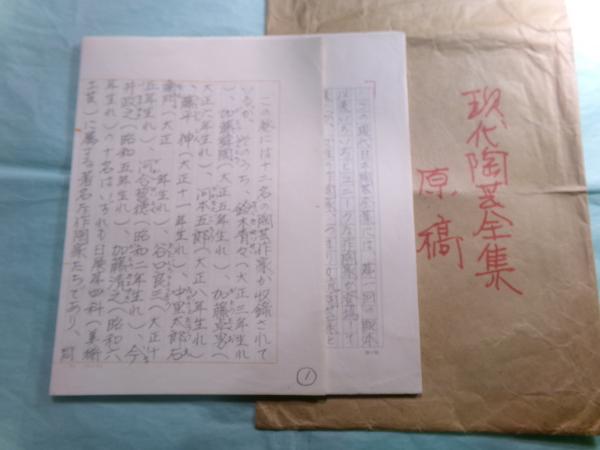 現代陶芸全集
原稿
この現代日本陶芸全集には、第一回の配本
この巻には十二名の陶芸作家が収録されて
いるが、そのうち、鈴木青々(大正三年生れ
)、加藤舜陶(大正五年生れ)、加藤卓男(
大正六年生れ)、河本五郎(大正八年生れ)
、藤平伸(大正十一年生れ)、中里太郎右
衛門(大正 年生れ)、谷口良三(大正十
五年生れ)、河合誓徳(昭和二年生れ)、今
井政之(昭和五年生れ)、加藤清之(昭和六
年生れ)の十名はいずれも日展第四科(美術
工芸)に属する著名な作陶家たちであり、同
①